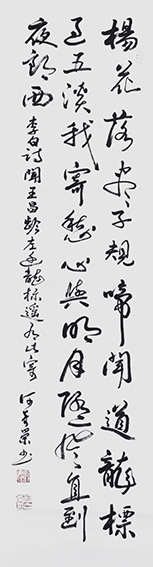 楊花落盡子規啼聞道龍標
過五溪我寄愁心與明月隨君直到
夜郎西
李白詩聞王昌齡左遷龍標遙有此寄